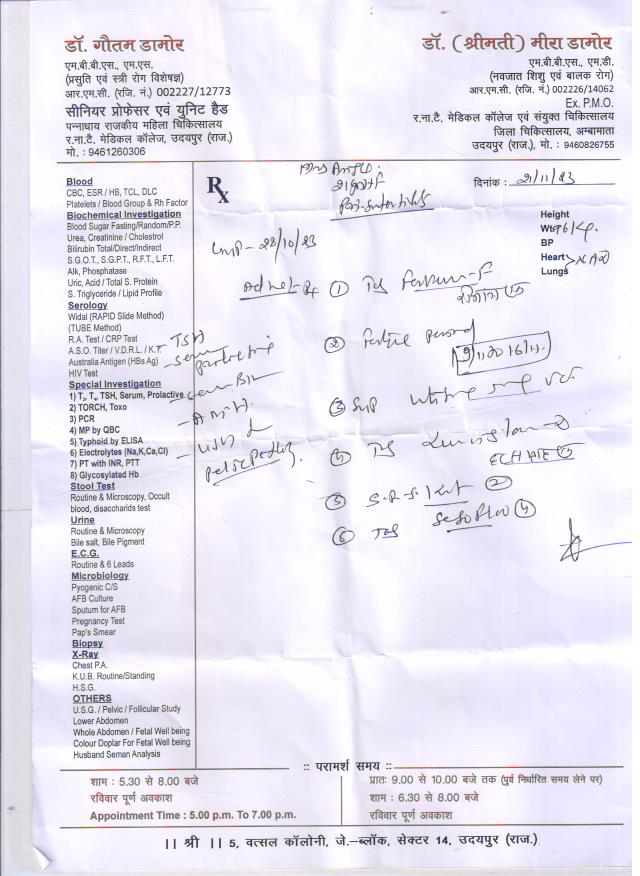 डॉ. गौतम डामोर
एम.बी.बी.एस., एम.एस.
(प्रसुति एवं स्त्री रोग विशेषज्ञ)
आर.एम.सी. (रजि. नं.) 002227/12773
सीनियर प्रोफेसर एवं युनिट हैड
पन्नाधाय राजकीय महिला चिकित्सालय
र.ना.टै. मेडिकल कॉलेज, उदयपुर (राज.)
मो. : 9461260306
डॉ. (श्रीमती) मीरा डामोर
एम.बी.बी.एस., एम.डी.
(नवजात शिशु एवं बालक रोग)
आर.एम.सी. (रजि. नं.) 002226/14062
Ex. P.M.O.
र.ना.टै. मेडिकल कॉलेज एवं संयुक्त चिकित्सालय
जिला चिकित्सालय, अम्बामाता
उदयपुर (राज.), मो. : 9460826755
Blood
CBC, ESR / HB, TCL, DLC
Platelets / Blood Group & Rh Factor
Biochemical Investigation
Blood Sugar Fasting/Random/P.P.
Urea, Creatinine / Cholestrol
Bilirubin Total/Direct/Indirect
S.G.O.T., S.G.P.T., R.F.T., L.F.T.
Alk, Phosphatase
Uric, Acid / Total S. Protein
S. Triglyceride / Lipid Profile
Serology
Widal (RAPID Slide Method)
(TUBE Method)
R.A. Test / CRP Test
A.S.O. Titer / V.D.R.L. / K.T.
Australia Antigen (HBs Ag)
HIV Test
Special Investigation
1) T₃, T₄, TSH, Serum, Prolactive
2) TORCH, Toxo
3) PCR
4) MP by QBC
5) Typhoid by ELISA
6) Electrolytes (Na,K,Ca,Cl)
7) PT with INR, PTT
8) Glycosylated Hb
Stool Test
Routine & Microscopy, Occult
blood, disaccharids test
Urine
Routine & Microscopy
Bile salt, Bile Pigment
E.C.G.
Routine & 6 Leads
Microbiology
Pyogenic C/S
AFB Culture
Sputum for AFB
Pregnancy Test
Pap's Smear
Biopsy
X-Ray
Chest P.A.
K.U.B. Routine/Standing
H.S.G.
OTHERS
U.S.G. / Pelvic / Follicular Study
Lower Abdomen
Whole Abdomen / Fetal Well being
Colour Doplar For Fetal Well being
Husband Seman Analysis
TSH
Serum
A M H
Rx
दिनांक : 21/11/23
Height
Wt.
BP
Heart
Lungs
NAD
LMP - 28/10/23
①
②
Fertile period
9/11 to 16/11
③
④
⑤
⑥
:: परामर्श समय ::
शाम : 5.30 से 8.00 बजे
रविवार पूर्ण अवकाश
Appointment Time : 5.00 p.m. To 7.00 p.m.
प्रातः 9.00 से 10.00 बजे तक (पुर्व निर्धारित समय लेने पर)
शाम : 6.30 से 8.00 बजे
रविवार पूर्ण अवकाश
।। श्री ।। 5, वत्सल कॉलोनी, जे.–ब्लॉक, सेक्टर 14, उदयपुर (राज.)